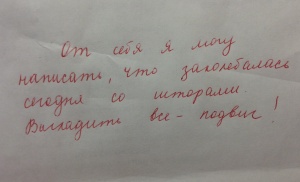 От себя я могу
написать, что заколебалась
сегодня со шторами.
Выгладить все - подвиг!